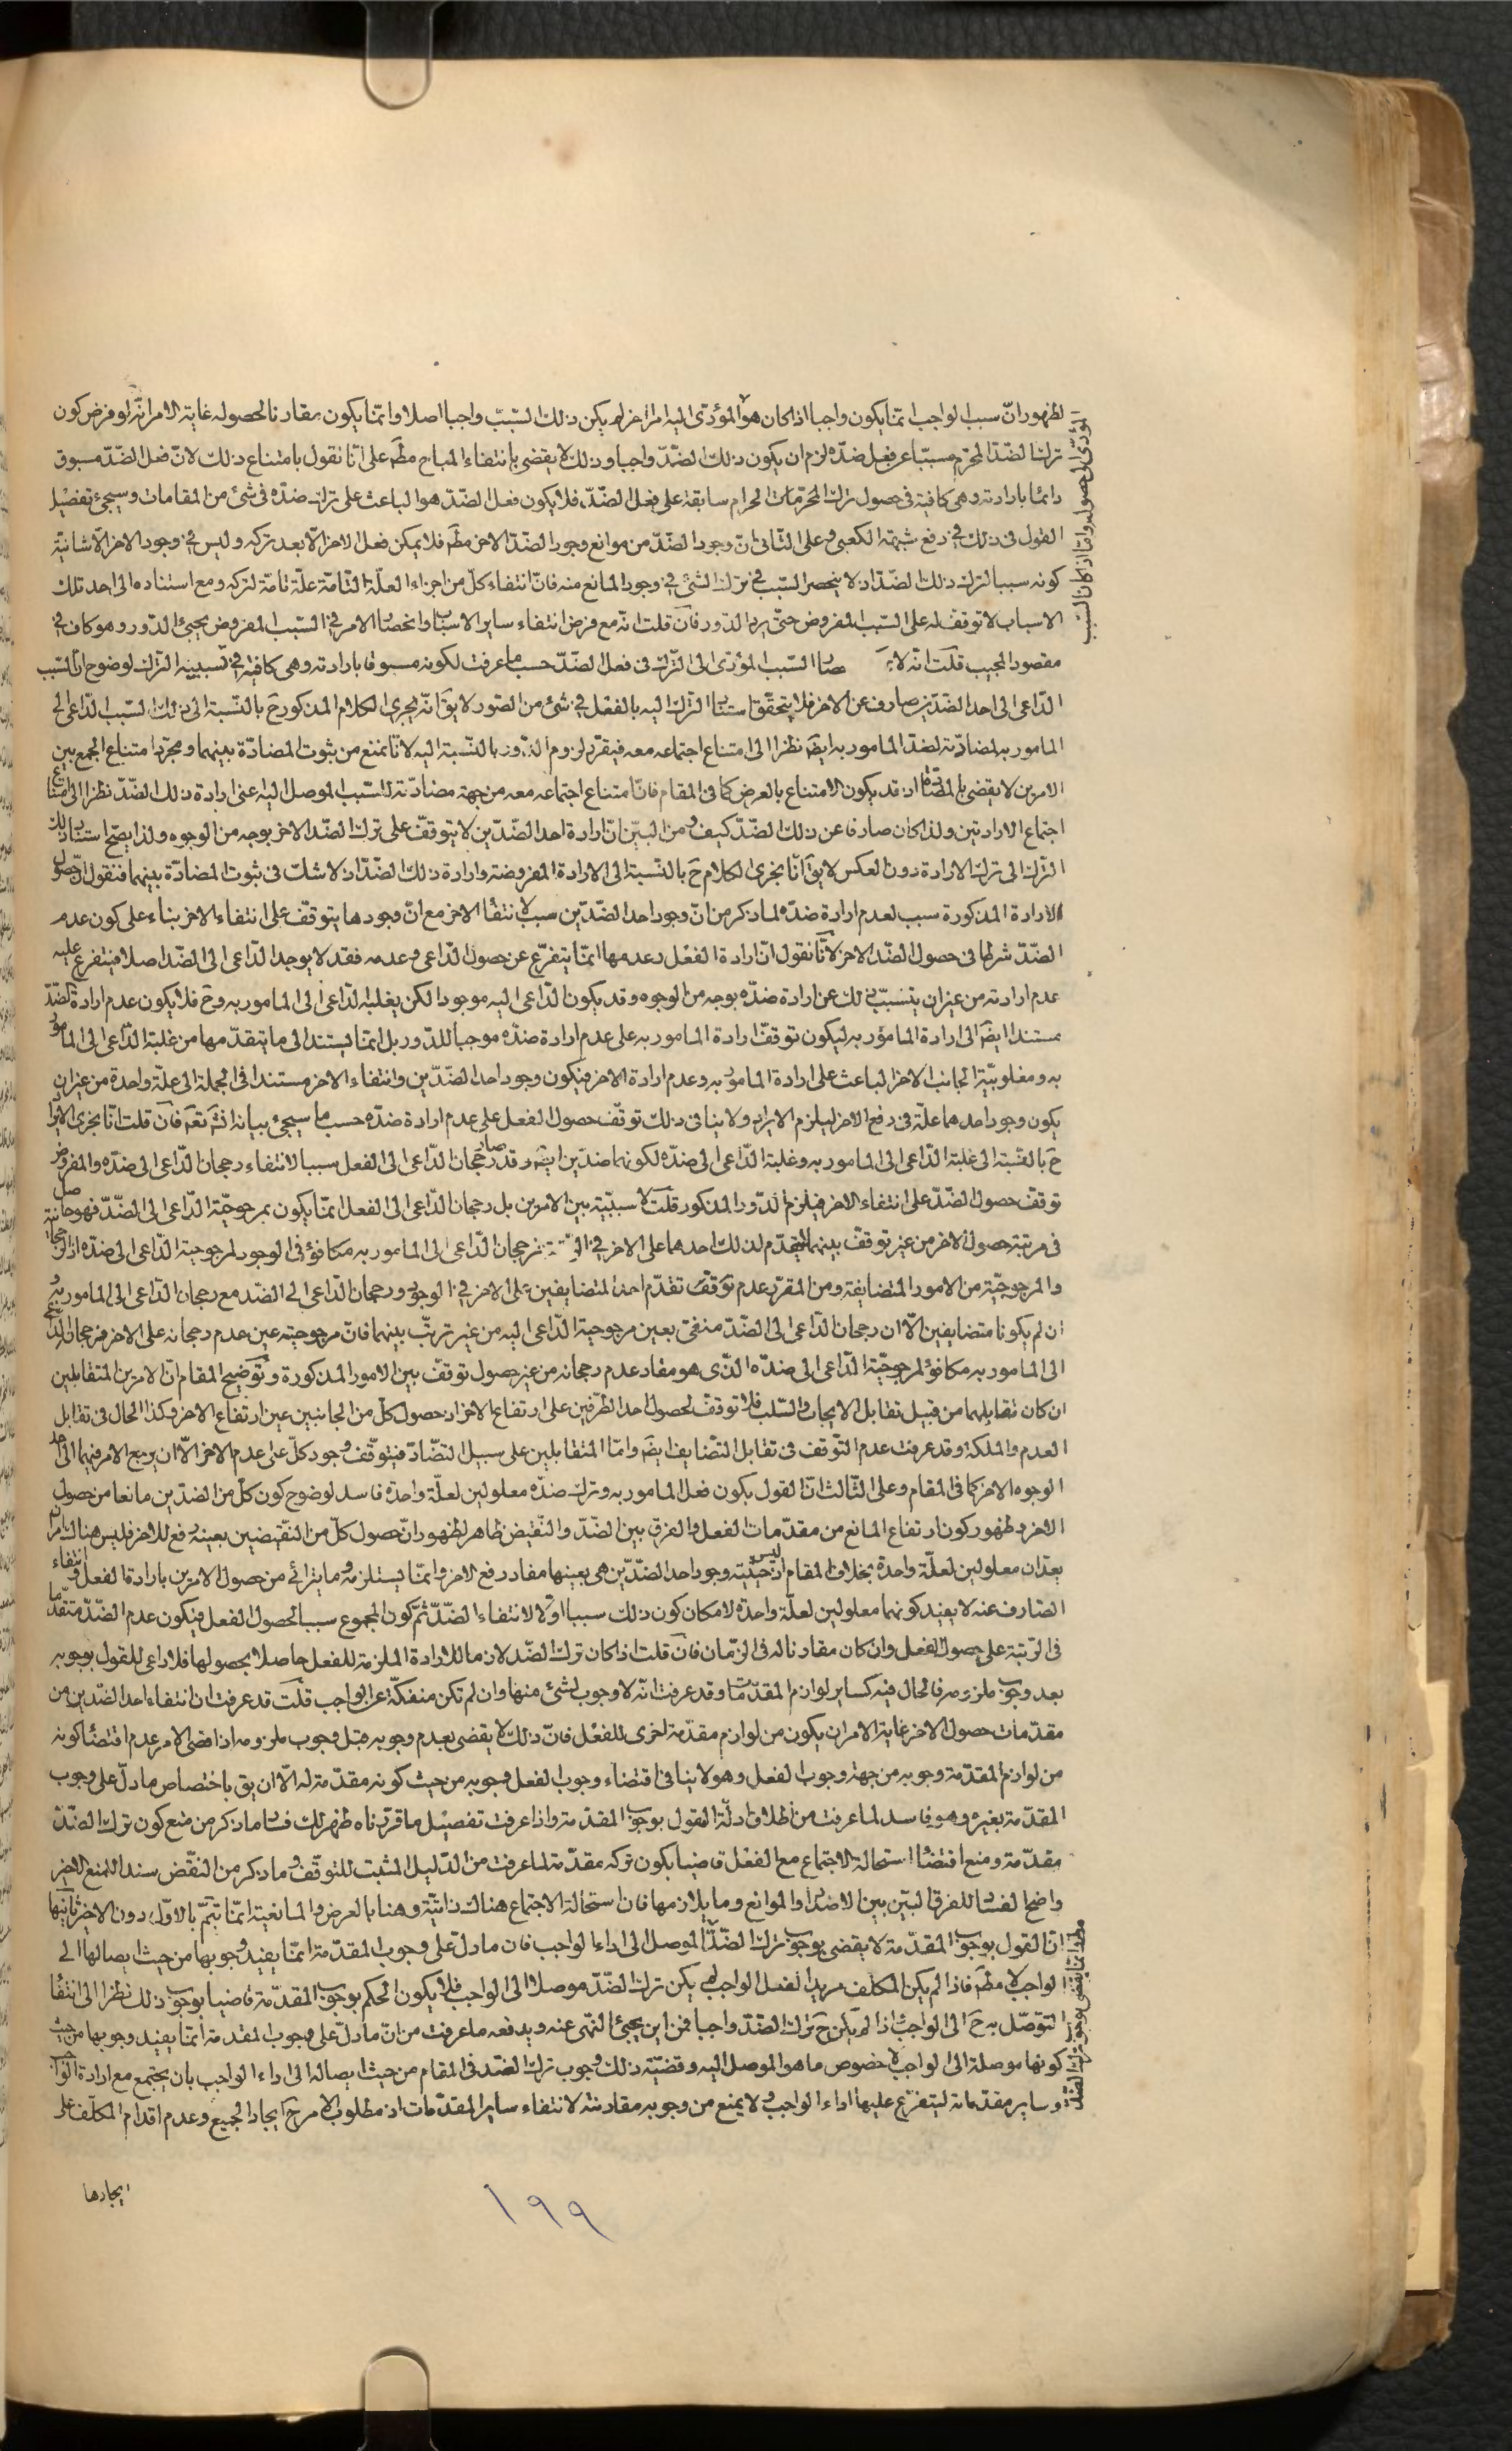 لظهور انّ سبب الواجب انّما يكون واجبا اذا كان هو المؤدّى اليه امّا غير فلم يكن ذلك السّبب واجبا اصلا وانّما يكون مقارنا لحصوله غاية الامر انّه لو فرض كون
ترك الضّدّ المحرّم مسبّبا عن فعل ضدّه لزم ان يكون ذلك الضّدّ واجبا وذلك لا يقضى بانتفاء المباح مطلقا على انّا نقول بامتناع ذلك لانّ فعل الضّدّ مسبوق
دائما بارادته وهى كافية فى حصول ترك المحرّمات الحرام سابقة على فعل الضّدّ فلا يكون فعل الضّدّ هو الباعث على ترك ضدّه فى شئ من المقامات وسيجئ تفصيل
القول فى ذلك فى دفع شبهة الكعبى وعلى الثّانى انّ وجود الضّدّ من موانع وجود الضّدّ الاخر مط فلا يمكن فعل الاخر الّا بعد تركه وليس فى وجود الاخر الّا شانيّة
كونه سببا لترك ذلك الضّدّ اذ لا ينحصر السّبب فى ترك الشّئ فى وجود المانع منه فانّ انتفاء كلّ من اجزاء العلّة التّامّة علّة تامّة لتركه ومع استناده الى احد تلك
الاسباب لا توقّف له على السّبب المفروض حتّى يرد الدّور فان قلت انّه مع فرض انتفاء ساير الاسباب وانحصار الامر فى السّبب المفروض يجئ الدّور وهو كاف فى
مقصود المجيب قلت انّه لا السّبب المؤدّى الى التّرك فى فعل الضّدّ حسب ما عرفت لكونه مسبوقا بارادته وهى كافية فى تسبيبة التّرك لوضوح انّ السّبب
الدّاعى الى احد الضّدّين صارف عن الاخر فلا يتحقّق استناد التّرك اليه بالفعل فى شئ من الصّور لا يق انّه يجرى الكلام المذكور ح بالنّسبة الى ذلك السّبب الدّاعى الى
المامور به لمضادّته لضدّ المامور به ايض نظرا الى امتناع اجتماعه معه فيقرّر لزوم الدّور بالنّسبة اليه لانّا نمنع من ثبوت المضادّة بينهما ومجرّد امتناع الجمع بين
الامرين لا يقضى بالمضادّة اذ قد يكون الامتناع بالعرض كما فى المقام فانّ امتناع اجتماعه معه من جهة مضادّته للسّبب الموصل اليه اعنى ارادة ذلك الضّدّ نظرا الى امتناع
اجتماع الارادتين ولذا كان صارفا عن ذلك الضّدّ كيف ومن البيّن انّ ارادة احد الضّدّين لا يتوقّف على ترك الضّدّ الاخر بوجه من الوجوه ولذا يصحّ استناد ذلك
التّرك الى ترك الارادة دون العكس لا يق انّا نجرى الكلام ح بالنّسبة الى الارادة المفروضة وارادة ذلك الضّدّ اذ لا شك فى ثبوت المضادّة بينهما فنقول انّ حصول
الارادة المذكورة سبب لعدم ارادة ضدّه لما ذكر من انّ وجود احد الضّدّين سبب لانتفاء الاخر مع انّ وجودها يتوقّف على انتفاء الاخر بناء على كون عدم
الضّدّ شرطا فى حصول الضّدّ الاخر لانّا نقول انّ ارادة الفعل وعدمها انّما يتفرّع عن حصول الدّاعى وعدمه فقد لا يوجد الدّاعى الى الضّدّ اصلا فيتفرّع عليه
عدم ارادته من غير ان يتسبّب ذلك عن ارادة ضدّه بوجه من الوجوه وقد يكون الدّاعى اليه موجودا لكن يغلبه الدّاعى الى المامور به وح فلا يكون عدم ارادة الضّدّ
مستندا ايض الى ارادة المامور به ليكون توقّف ارادة المامور به على عدم ارادة ضدّه موجبا للدّور بل انّما يستند الى ما يتقدّمها من غلبة الدّاعى الى المامور
به ومغلوبيّة الجانب الاخر الباعث على ارادة المامور به وعدم ارادة الاخر فيكون وجود احد الضّدّين وانتفاء الاخر مستندا فى الجملة الى علّة واحدة من غير ان
يكون وجود احدهما علّة فى رفع الاخر ليلزم الايراد ولا ينافى ذلك توقّف حصول الفعل على عدم ارادة ضدّه حسب ما سيجئ بيانه انش تعم فان قلت انّا نجرى الايراد
ح بالنّسبة الى غلبة الدّاعى الى المامور به وغلبة الدّاعى الى ضدّه لكونهما ضدّين ايض وقد صار رجحان الدّاعى الى الفعل سببا لانتفاء رجحان الدّاعى الى ضدّه والمفروض
توقّف حصول الضّدّ على انتفاء الاخر فيلزم الدّور المذكور قلت لا سببيّة بين الامرين بل رجحان الدّاعى الى الفعل انّما يكون بمرجوحيّة الدّاعى الى الضّدّ فهو حاصل
فى مرتبة حصول الاخر من غير توقّف بينهما ليتقدّم لذلك احدهما على الاخر فى فرجحان الدّاعى الى المامور به مكافؤ فى الوجود لمرجوحيّة الدّاعى الى ضدّه اذ الرّجحانيّة
والمرجوحيّة من الامور المتضايفة ومن المقرّر عدم توقّف تقدّم احد المتضايفين على الاخر فى الوجود ورجحان الدّاعى الى الضّد مع رجحان الدّاعى الى المامور به و
ان لم يكونا متضايفين الّا ان رجحان الدّاعى الى الضّدّ منفىّ بعين مرجوحيّة الدّاعى اليه من غير ترتّب بينهما فانّ مرجوحيّته عين عدم رجحانه على الاخر فرجحان الدّاعى
الى المامور به مكافؤ لمرجوحيّة الدّاعى الى ضدّه الّذى هو مفاد عدم رجحانه من غير حصول توقّف بين الامور المذكورة وتوضيح المقام انّ الامرين المتقابلين
ان كان تقابلهما من قبيل تقابل الايجاب والسّلب فلا توقّف لحصول احد الطّرفين على ارتفاع الاخر اذ حصول كلّ من الجانبين عين ارتفاع الاخر وكذا الحال فى تقابل
العدم والملكة وقد عرفت عدم التّوقّف فى تقابل التّضايف ايض وامّا المتقابلين على سبيل التضّادّ فيتوقّف وجود كلّ على عدم الاخر الّا ان يرجع الامر فيهما الى احد
الوجوه الاخر كما فى المقام وعلى الثّالث انّ القول بكون فعل المامور به وترك ضدّه معلولين لعلّة واحدة فاسد لوضوح كون كلّ من الضدّين مانعا من حصول
الاخر وظهور كون ارتفاع المانع من مقدّمات الفعل والفرق بين الضّدّ والنّقيض ظاهر لظهور انّ حصول كلّ من النّقيضين بعينه رفع للاخر فليس هناك امران
يعدّان معلولين لعلّة واحدة بخلاف المقام اذ ليس حيثيّة وجود احد الضّدّين هى بعينها مفاد رفع الاخر وانّما يستلزمه وما يترائى من حصول الامرين بارادة الفعل وانتفاء
الصّارف عنه لا يفيد كونهما معلولين لعلّة واحدة لامكان كون ذلك سببا اوّلا لانتفاء الضّدّ ثمّ كون المجموع سببا لحصول الفعل فيكون عدم الضّدّ متقدّما
فى الرّتبة على حصول الفعل وان كان مقارنا له فى الزّمان فان قلت اذا كان ترك الضّد لازما للارادة الملزمة للفعل حاصلا بحصولها فلا داعى للقول بوجوبه
بعد وجوب ملزومه فالحال فيه كساير لوازم المقدّمات وقد عرفت انّه لا وجوب لشئ منها وان لم تكن منفكّة عن الواجب قلت قد عرفت ان انتفاء احد الضّدّين من
مقدّمات حصول الاخر غاية الامر ان يكون من لوازم مقدّمة اخرى للفعل فانّ ذلك لا يقضى بعدم وجوبه قبل وجوب ملزومه اذ اقضى الامر عدم اقتضاء كونه
من لوازم المقدّمة وجوبه من جهة وجوب الفعل وهو لا ينافى اقتضاء وجوب الفعل وجوبه من حيث كونه مقدّمة له الّا ان يق باختصاص ما دلّ على وجوب
المقدّمة بغيره وهو فاسد لما عرفت من اطلاق ادلّة القول بوجوب المقدّمة واذا عرفت تفصيل ما قرّرناه ظهر لك فساد ما ذكر من منع كون ترك الضّدّ
مقدّمة ومنع اقتضاء استحالة الاجتماع مع الفعل قاضيا بكون تركه مقدّمة لما عرفت من الدّليل المثبت للتوقّف وما ذكر من النقّض سندا للمنع الاخير
واضح الفساد للفرق البيّن بين الاضداد والموانع وما يلازمها فان استحالة الاجتماع هناك ذاتيّة وهنا بالعرض والمانعيّة انّما تتمّ بالاوّل دون الاخر ثانيها
انّ القول بوجوب المقدّمة لا يقضى بوجوب ترك الضّدّ الموصل الى اداء الواجب فان ما دلّ على وجوب المقدّمة انّما يفيد وجوبها من حيث ايصالها الى
الواجب لا مط فاذا لم يكن المكلّف مريدا لفعل الواجب لم يكن ترك الضّدّ موصلا الى الواجب فلا يكون الحكم بوجوب المقدّمة قاضيا بوجوب ذلك نظرا الى انتفاء
التوصّل به ح الى الواجب واذا لم يكن ح ترك الضّدّ واجبا فمن اين يجئ النّهى عنه ويدفعه ما عرفت من انّ ما دلّ على وجوب المقدمة انّما يفيد وجوبها من حيث
كونها موصلة الى الواجب لا خصوص ما هو الموصل اليه وقضيّة ذلك وجوب ترك الضّد فى المقام من حيث ايصاله الى اداء الواجب بان يجتمع مع ارادة الواجب
وساير مقدّماته ليتفرّع عليها اداء الواجب ولا يمنع من وجوبه مقارنته لانتفاء ساير المقدّمات اذ مطلوب الامر ح ايجاد الجميع وعدم اقدام المكلّف على
ايجادها
المؤدّى الى حصوله وامّا اذا كان السّبب
مط وانّما يقضى بوجوب ترك الضّدّ
١٩٩